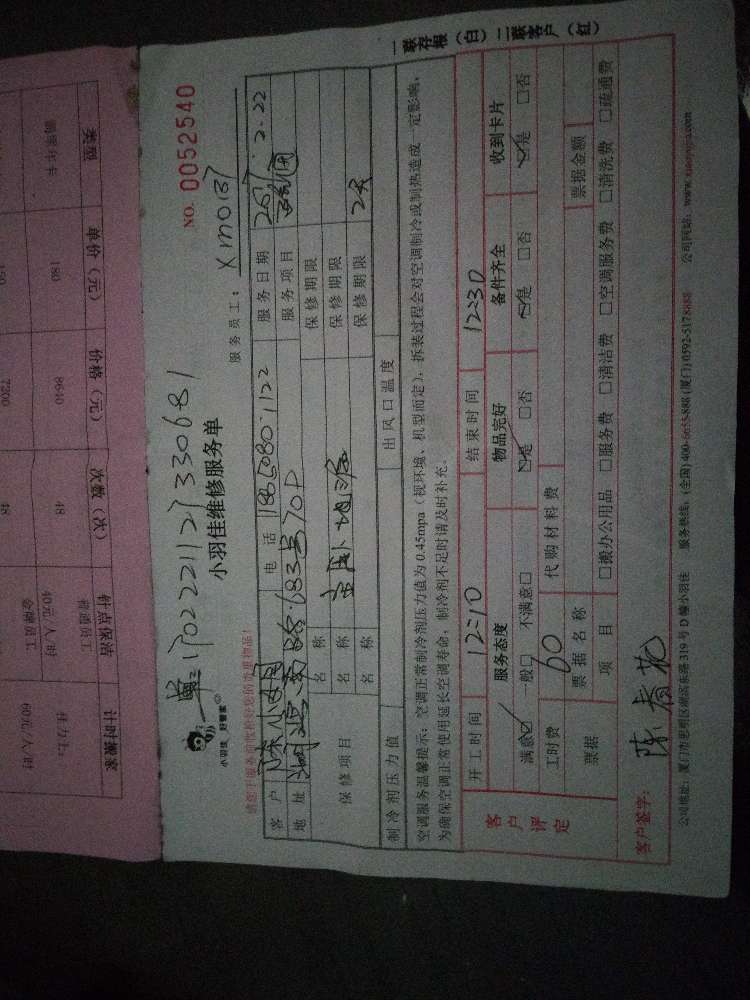 一联存根（白）二联客户（红）
NO. 0052540
单:170222112 1330681
小羽佳 好管家
小羽佳维修服务单
服务员工：
请您于服务前收拾好您的贵重物品！
客户 电话 服务日期 2.22
地址 服务项目
保修项目
名称 保修期限
名称 保修期限
名称 保修期限 2天
制冷剂压力值 出风口温度
空调服务温馨提示：空调正常制冷剂压力值为0.45mpa（视环境、机型而定），拆装过程会对空调制冷或制热造成一定影响，
为确保空调正常使用延长空调寿命，制冷剂不足时请及时补充。
客户评定
开工时间 12:10 结束时间 12:30
服务态度 物品完好 备件齐全 收到卡片
满意☑ 一般□ 不满意□ ☑是 □否 ☑是 □否 ☑是 □否
工时费 60 代购材料费
票据 票据名称 票据金额
项目 □搬办公用品 □服务费 □清洁费 □空调服务费 □清洗费 □疏通费
客户签字：陈春花
公司地址：厦门市思明区湖滨东路319号D幢小羽佳 服务热线：(全国)400-6655-888 (厦门)0592-5178888 公司网站：www.xiaoyujia.com
类型 单价（元） 价格（元） 次数（次） 针点保洁 计时搬家
180 8640 48 普通员工 40元/人/时
7200 48 金牌员工 60元/人/时